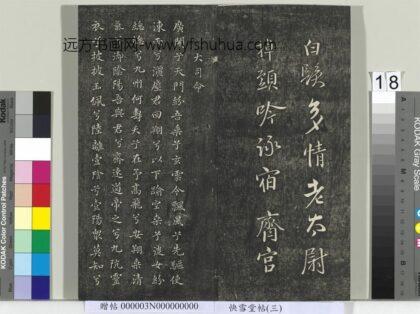 远方书画网-www.yfshuhua.com
白髮多情老太尉
掉頭吟詠宿齋宮
大司命
廣開兮天門紛吾乘兮玄雲令飄風兮先驅使
涷雨兮灑塵君回翔兮以下踰空桑兮從女紛
總總兮九州何壽夭兮在予高飛兮安翔乘清
氣兮御陰陽吾與君兮齋速道帝之兮九阬靈
衣兮披披玉佩兮陸離壹陰兮壹陽眾莫知兮
18
Kodak
KODAK Color Control Patches
KODAK Gray Scale
贈帖 000003N000000000
快雪堂帖(三)